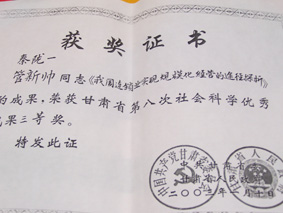 获奖证书
秦陇一
管新帅同志《我国连锁业实现规模化经营的途径探析》
的成果，荣获甘肃省第八次社会科学优秀
成果三等奖。
特发此证
中共甘肃
甘肃省人民政
二〇〇三年